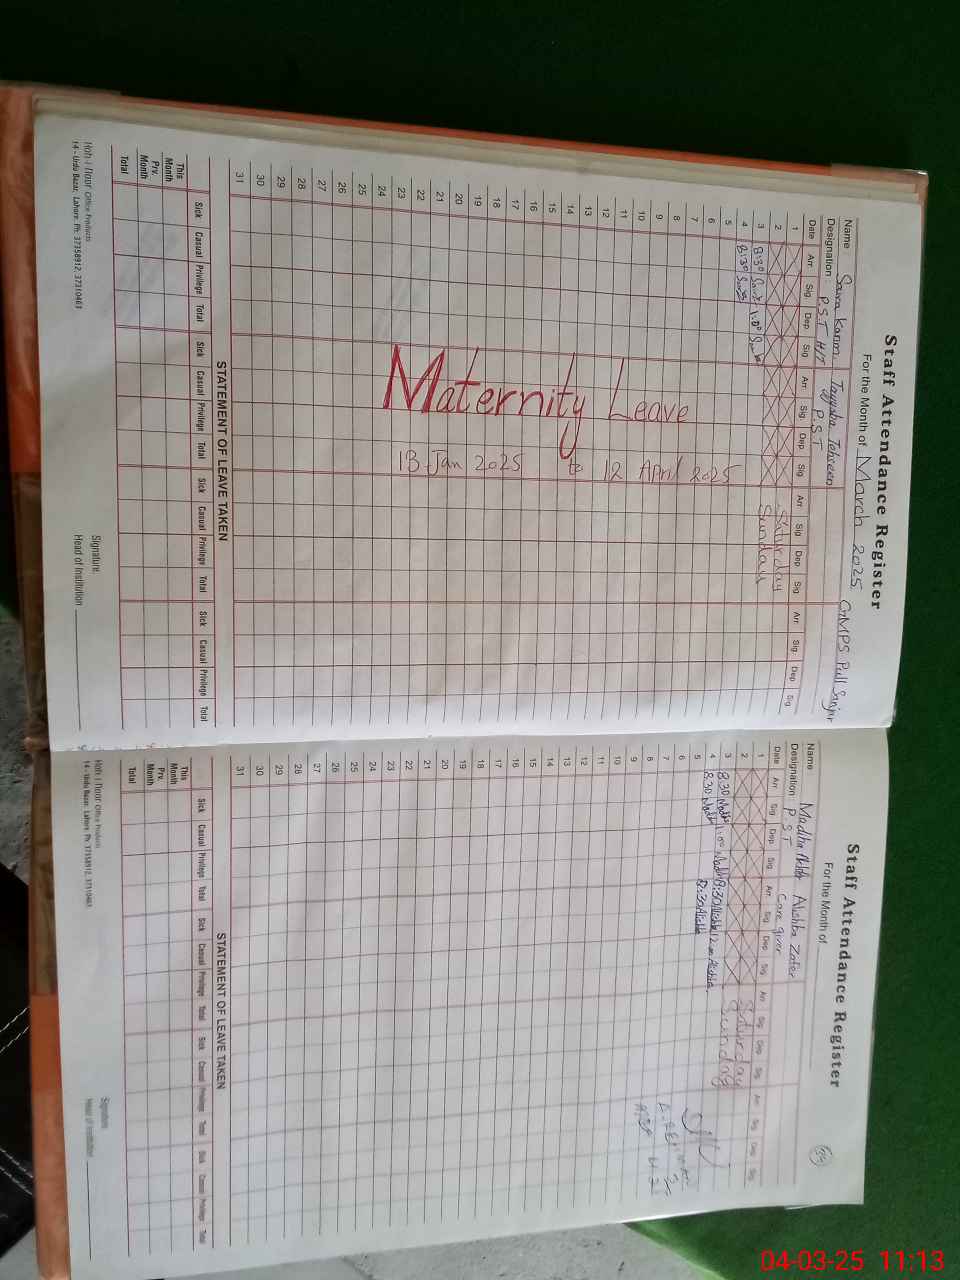 Staff Attendance Register
For the Month of March 2025 GMPS Pull Sanjar
Name Saira Karim Tayyaba Tehseen
Designation : P.S.T H/T P.S.T
Date Arr Sig Dep Sig Arr Sig Dep Sig Arr Sig Dep Sig Arr Sig Dep Sig
1 Saturday
2 Sunday
3 8:30 1:00
4 8:30
5
6
7
8
9
10
11
12
13
14
15
16
17
18
19
20
21
22
23
24
25
26
27
28
29
30
31
Maternity Leave
13 Jan 2025 to 12 April 2025
STATEMENT OF LEAVE TAKEN
Sick Casual Privilege Total Sick Casual Privilege Total Sick Casual Privilege Total Sick Casual Privilege Total
This Month
Prv. Month
Total
Signature.
Head of Institution
Roh-i-Noor Office Products
14 - Urdu Bazar, Lahore. Ph: 37358912, 37310461
Staff Attendance Register
For the Month of
Name Alishba Zafer
Designation : P.S.T Care giver
Date Arr Sig Dep Sig Arr Sig Dep Sig Arr Sig Dep Sig Arr Sig Dep Sig
1 Saturday
2 Sunday
3 8:30 1:00 8:30
4 8:30 8:30
5
6
7
8
9
10
11
12
13
14
15
16
17
18
19
20
21
22
23
24
25
26
27
28
29
30
31
STATEMENT OF LEAVE TAKEN
Sick Casual Privilege Total Sick Casual Privilege Total Sick Casual Privilege Total Sick Casual Privilege Total
This Month
Prv. Month
Total
Signature
Head of Institution
14 - Urdu Bazar, Lahore. Ph: 37358912, 37310461
04-03-25 11:13